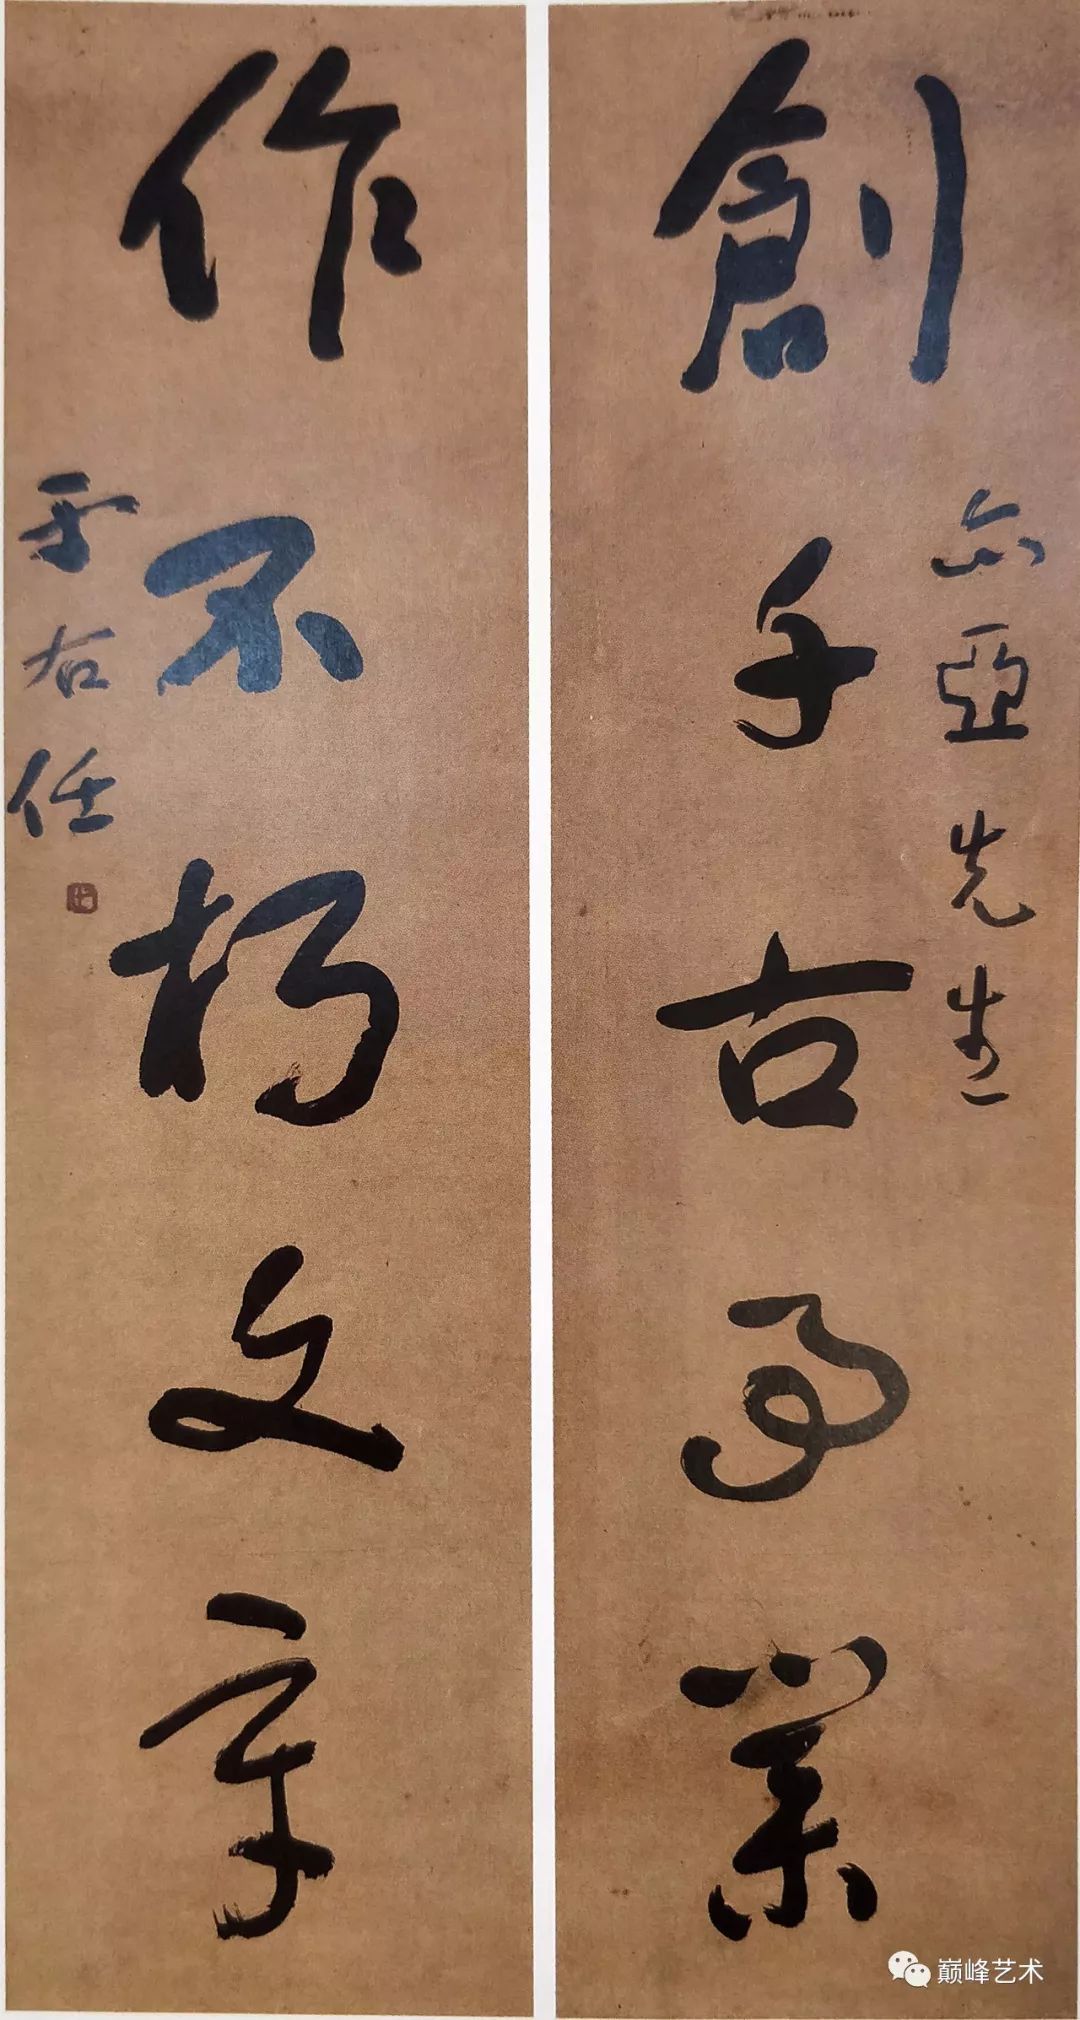 創千古事業
亦亞先生
作不朽文章
于右任
巅峰艺术